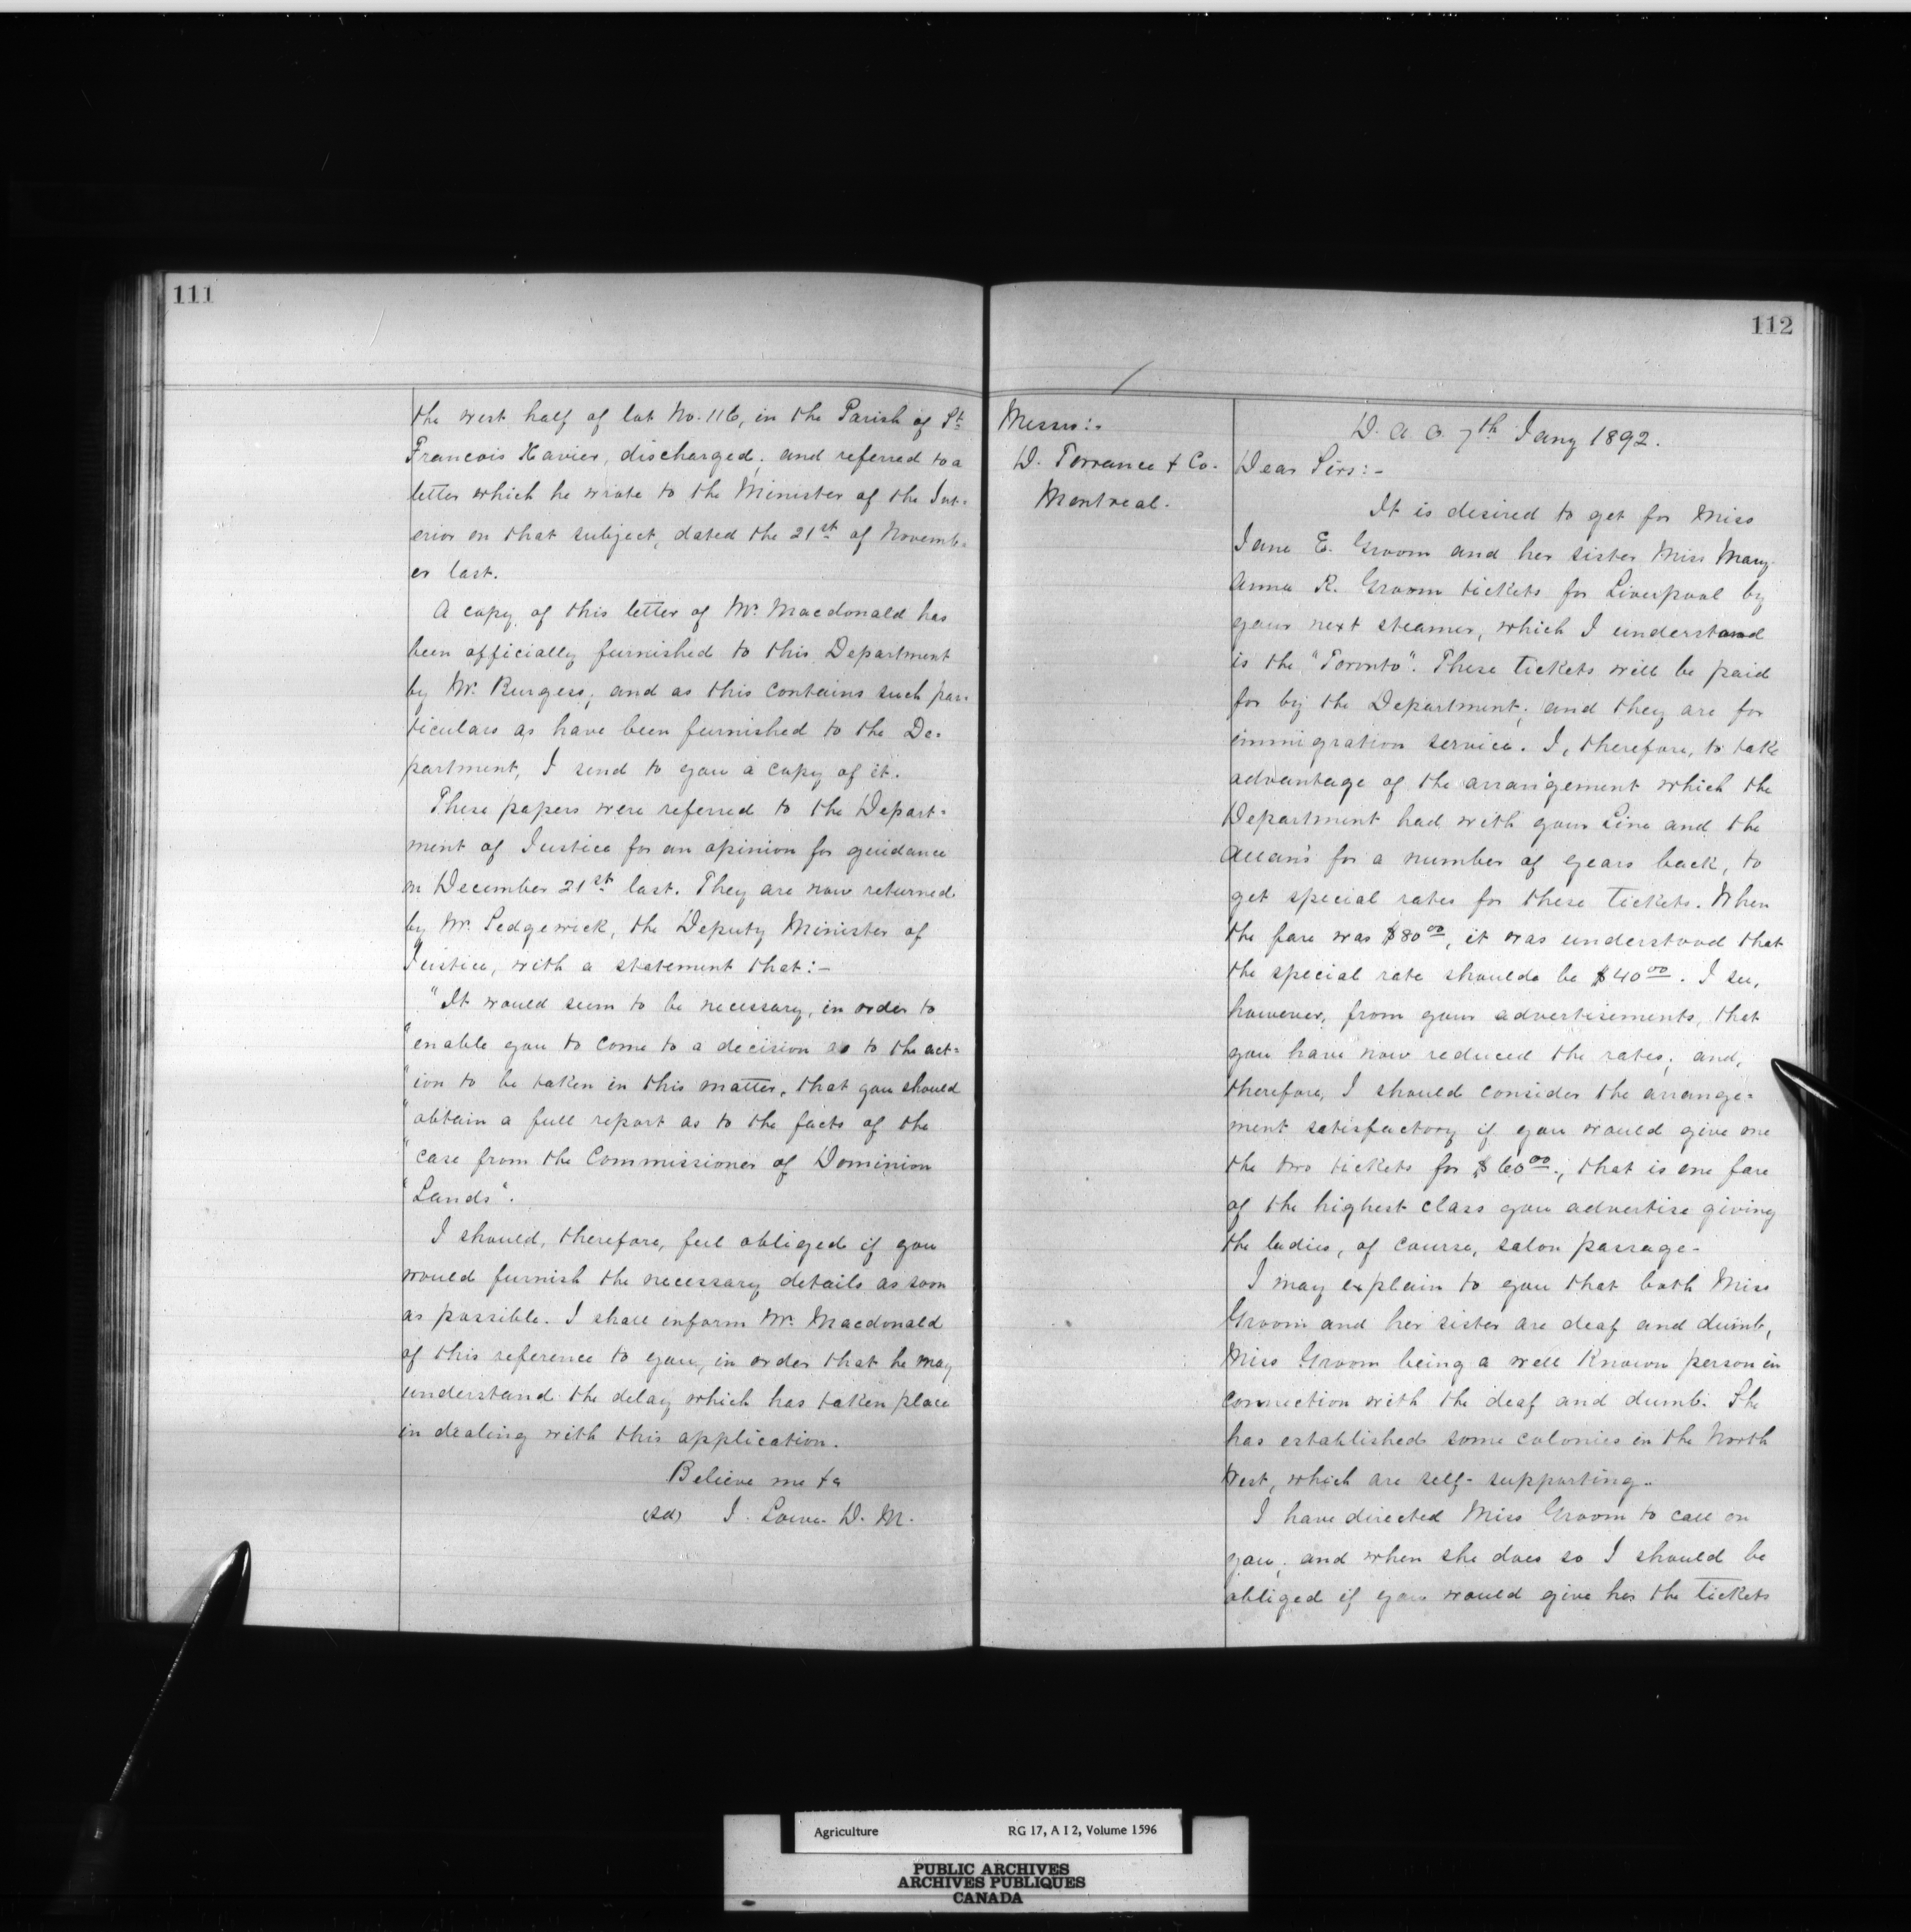 111
the west half of lot No. 116, in the Parish of St
Francois Xavier, discharged; and referred to a
letter which he wrote to the Minister of the Int-
erior on that subject, dated the 21st of Novemb-
er last.
A copy of this letter of Mr. Macdonald has
been officially furnished to this Department
by Mr. Burgess; and as this contains such par-
ticulars as have been furnished to the De-
partment, I send to you a copy of it.
These papers were referred to the Depart-
ment of Justice for an opinion for guidance
on December 21st last. They are now returned
by Mr. Sedgewick, the Deputy Minister of
Justice, with a statement that:-
"It would seem to be necessary, in order to
"enable you to come to a decision as to the act-
"ion to be taken in this matter, that you should
"obtain a full report as to the facts of the
"case from the Commissioner of Dominion
"Lands".
I should, therefore, feel obliged if you
would furnish the necessary details as soon
as possible. I shall inform Mr. Macdonald
of this reference to you, in order that he may
understand the delay which has taken place
in dealing with this application.
Believe me &c
(sd) J. Lowe. D. M.
112
Messrs:-
D. Torrance & Co.
Montreal.
D. A. O. 7th Jany 1892.
Dear Sirs:-
It is desired to get for Miss
Jane E. Groom and her sister Miss Mary
Anna R. Groom tickets for Liverpool by
your next steamer, which I understand
is the "Toronto". These tickets will be paid
for by the Department; and they are for
immigration service. I, therefore, to take
advantage of the arrangement which the
Department had with your Line and the
Allan's for a number of years back, to
get special rates for these tickets. When
the fare was $80 00, it was understood that
the special rate should be $40 00. I see,
however, from your advertisements, that
you have now reduced the rates; and,
therefore, I should consider the arrange-
ment satisfactory if you would give me
the two tickets for $60 00.; that is one fare
of the highest class you advertise giving
the ladies, of course, salon passage.
I may explain to you that both Miss
Groom and her sister are deaf and dumb,
Miss Groom being a well known person in
connection with the deaf and dumb. She
has established some colonies in the North
West, which are self-supporting.
I have directed Miss Groom to call on
you; and when she does so I should be
obliged if you would give her the tickets
Agriculture RG 17, A I 2, Volume 1596
PUBLIC ARCHIVES
ARCHIVES PUBLIQUES
CANADA